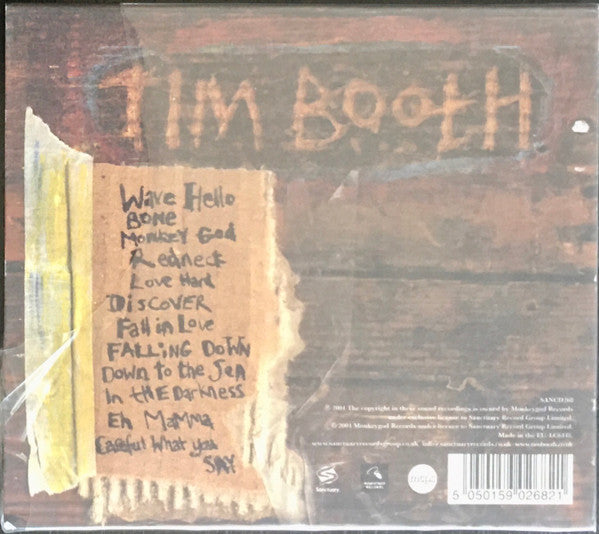 TIM BOOtH
Wave Hello
BONE
MONKEY God
Redneck
Love Hard
DiSCOVER
Fall in Love
FALLING DOWN
Down to the SEA
In tHE DaRKNESS
Eh MaMMa
Careful What you
SAY
SANCD268
℗ 2004 The copyright in these sound recordings is owned by Monkeygod Records
under exclusive license to Sanctuary Record Group Limited.
© 2004 Monkeygod Records under licence to Sanctuary Records Group Limited.
Made in the EU. LC6448.
www.sanctuaryrecordsgroup.co.uk info@sanctuaryrecords.co.uk www.timbooth.co.uk
Sanctuary
mcps
5 050159 026821